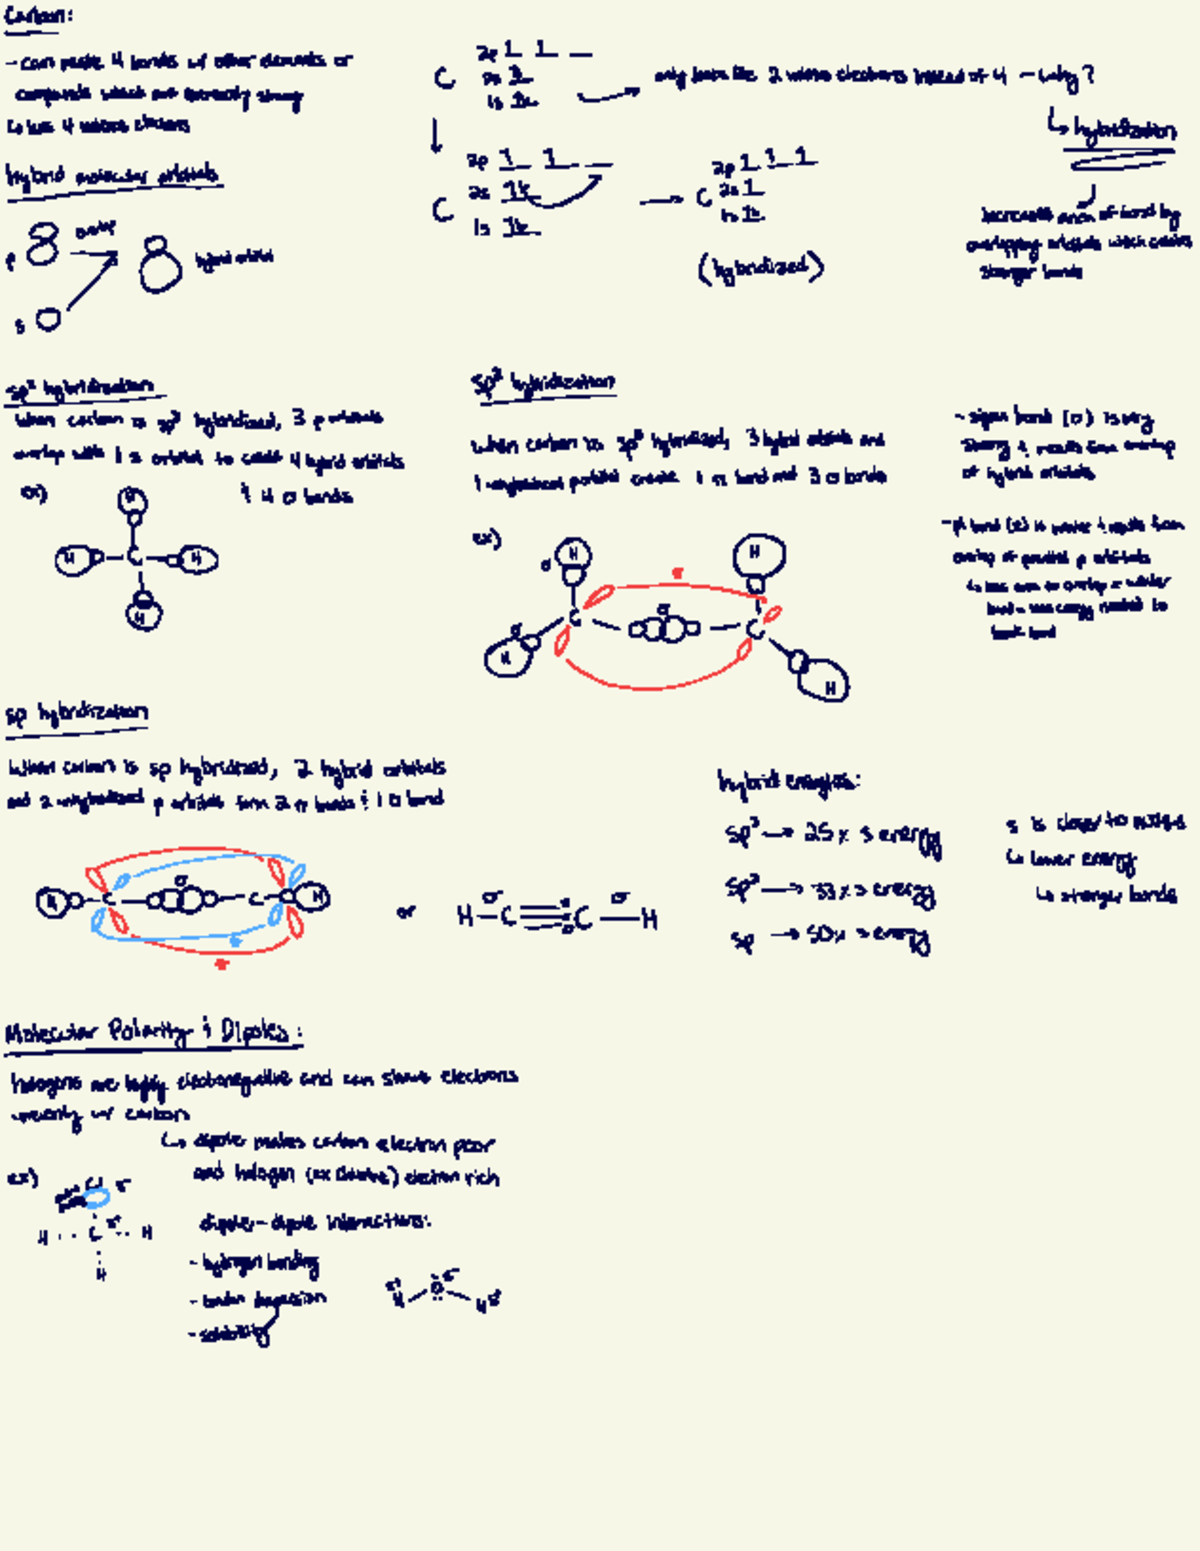 Carbon:
- can make 4 bonds w/ other elements or
compounds which are extremely strong
↳ has 4 valence electrons
C 2p 1 1 _
2s 1L
1s 1L
only looks like 2 valence electrons instead of 4 - why?
↳ hybridization
increases area of bond by
overlapping orbitals which creates
stronger bonds
C 2p 1 1 _
2s 1L
1s 1L
C 2p 1 1 1
2s 1
1s 1L
(hybridized)
hybrid molecular orbitals
p
overlap
hybrid orbital
s
sp³ hybridization
When carbon is sp³ hybridized, 3 p orbitals
overlap with 1 s orbital to create 4 hybrid orbitals
& 4 σ bonds
ex)
H
H C H
H
sp² hybridization
when carbon is sp² hybridized, 3 hybrid orbitals and
1 unhybridized p orbital create 1 π bond and 3 σ bonds
ex)
σ H π H
σ C σ C
H H
- sigma bond (σ) is very
strong & results from overlap
of hybrid orbitals
- pi bond (π) is weaker & results from
overlap of parallel p orbitals
↳ less area to overlap = weaker
bond = less energy needed to
break bond
sp hybridization
When carbon is sp hybridized, 2 hybrid orbitals
and 2 unhybridized p orbitals form 2 π bonds & 1 σ bond
H C σ C H
π
π
or
H - C ≡ C - H
σ π σ σ
hybrid energies:
sp³ → 25% s energy
sp² → 33% s energy
sp → 50% s energy
s is closer to nucleus
↳ lower energy
↳ stronger bonds
Molecular Polarity & Dipoles:
halogens are highly electronegative and can share electrons
unevenly w/ carbon
↳ dipole makes carbon electron poor
and halogen (ex chlorine) electron rich
ex)
Cl δ-
H C δ+ H
H
dipole-dipole interactions:
- hydrogen bonding
- london dispersion
- solubility
δ+ H O δ- H δ+